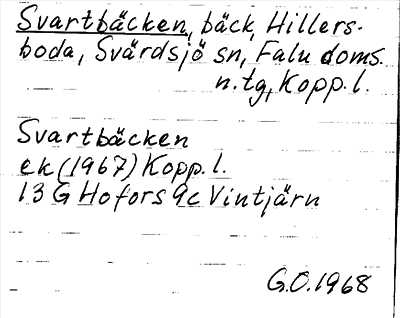 Svartbäcken, bäck, Hillers-
boda, Svärdsjö sn, Falu doms.
n.tg, Kopp.l.
Svartbäcken
ek (1967) Kopp.l.
13 G Hofors 9c Vintjärn
G.O. 1968